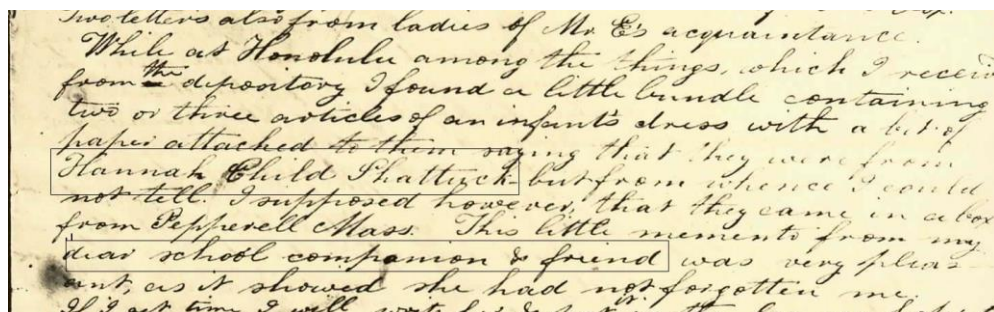 Two letters also from ladies of Mr. E's acquaintance.
While at Honolulu among the things, which I receiv
from the depository I found a little bundle containing
two or three articles of an infant's dress with a bit of
paper attached to them saying that they were from
Hannah Child Shattuck - but from whence I could
not tell. I supposed however, that they came in a box
from Pepperell Mass. This little memento from my
dear school companion & friend was very pleas-
ant, as it showed she had not forgotten me.
If I get time I will write